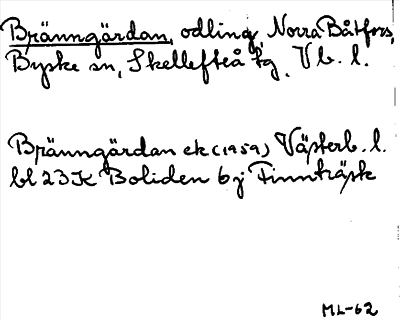 Bränngärdan, odling, Norra Båtfors,
Byske sn, Skellefteå tg, Vb. l.
Bränngärdan ek (1959) Västerb. l.
bl 23K Boliden 6j Finnträsk
ML-62